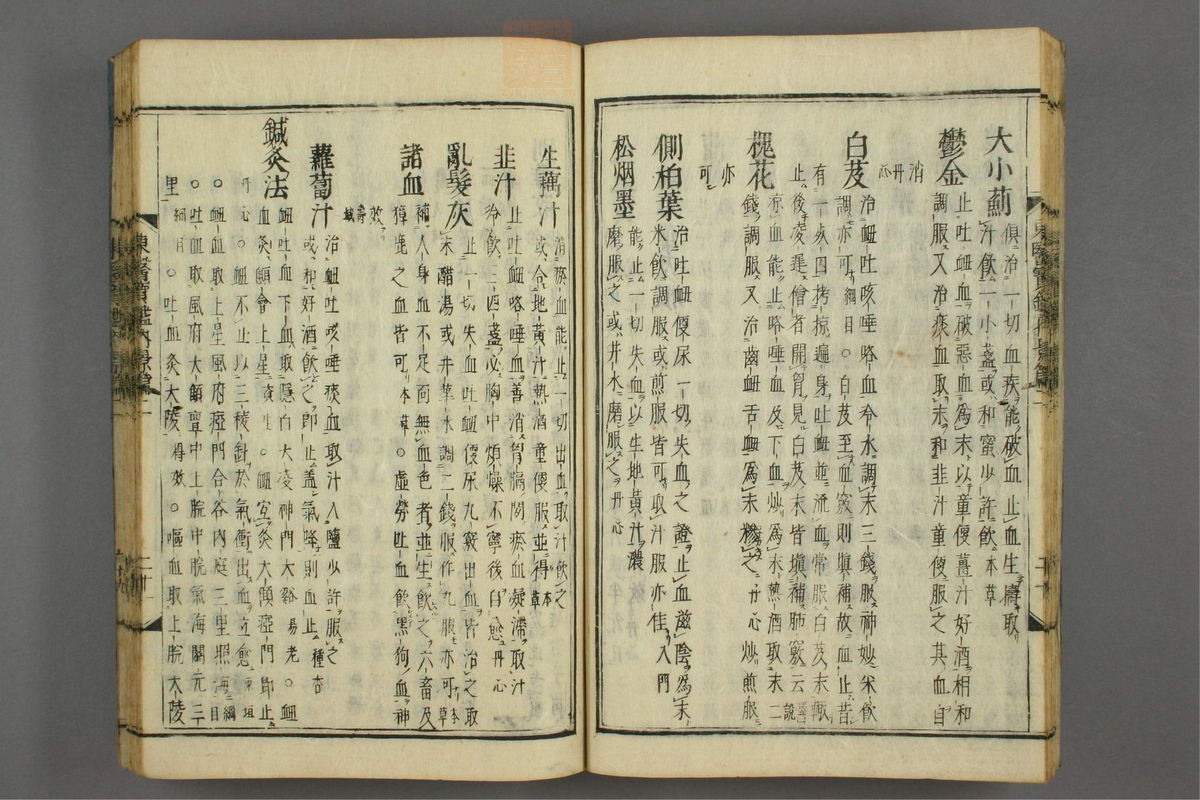 大小薊 俱治一切血疾能破血止血生擣取
汁飲一小盞或和蜜少許飲本草
鬱金 止吐血破惡血爲末以童便薑汁好酒相和
調服又治痰血取末和韭汁童便服之其血自
消丹心
白芨 治衄吐咳唾咯血冷水調末三錢服神妙米飲
調亦可綱目○白芨至血竅則塡補故血止昔
有一疾囚拷掠遍身吐衄並流血常服白芨末輙
止後凌遲僧者開胷見白芨末皆塡補肺竅云醫說
槐花 凉血能止咯唾血及下血炒爲末熱酒取末二
錢調服又治齒衄舌衄爲末糝之丹心炒煎服
亦可
側柏葉 治吐衄便尿一切失血之證止血滋陰爲末
米飲調服或煎服皆可取汁服亦佳入門
松烟墨 能止一切失血以生地黃汁濃
磨服之或井水磨服之丹心
生藕汁 消瘀血能止一切出血取汁飲之
或合地黃汁熱酒童便服並得本草
韭汁 止吐衄咯唾血善消胃脘間瘀血凝滯取汁
冷飲三四盞必胸中煩燥不寧後自愈丹心
亂髮灰 止一切失血吐衄便尿九竅出血皆治之取
末醋湯或井華水調二錢服作丸服亦可本草
諸血 補人身血不足面無血色者並生飲之六畜及
獐鹿之血皆可本草○虛勞吐血飲黑狗血神
效壽域
蘿蔔汁 治衄吐咳唾痰血取汁入鹽少許服之
或和好酒飲之即止盖氣降則血止種杏
鍼灸法 衄吐血下血取隱白大凌神門大谿易老○衄
血灸顖會上星資生○衄宜灸大顀瘂門即止
丹心○衄不止以三稜針於氣衝出血立愈東垣
○衄血取上星風府瘂門合谷內庭三里照海綱目
○吐血取風府大顀亶中上脘中脘氣海關元三
里綱目○吐血灸大陵得效○嘔血取上脘大陵
東醫寶鑑內景篇二